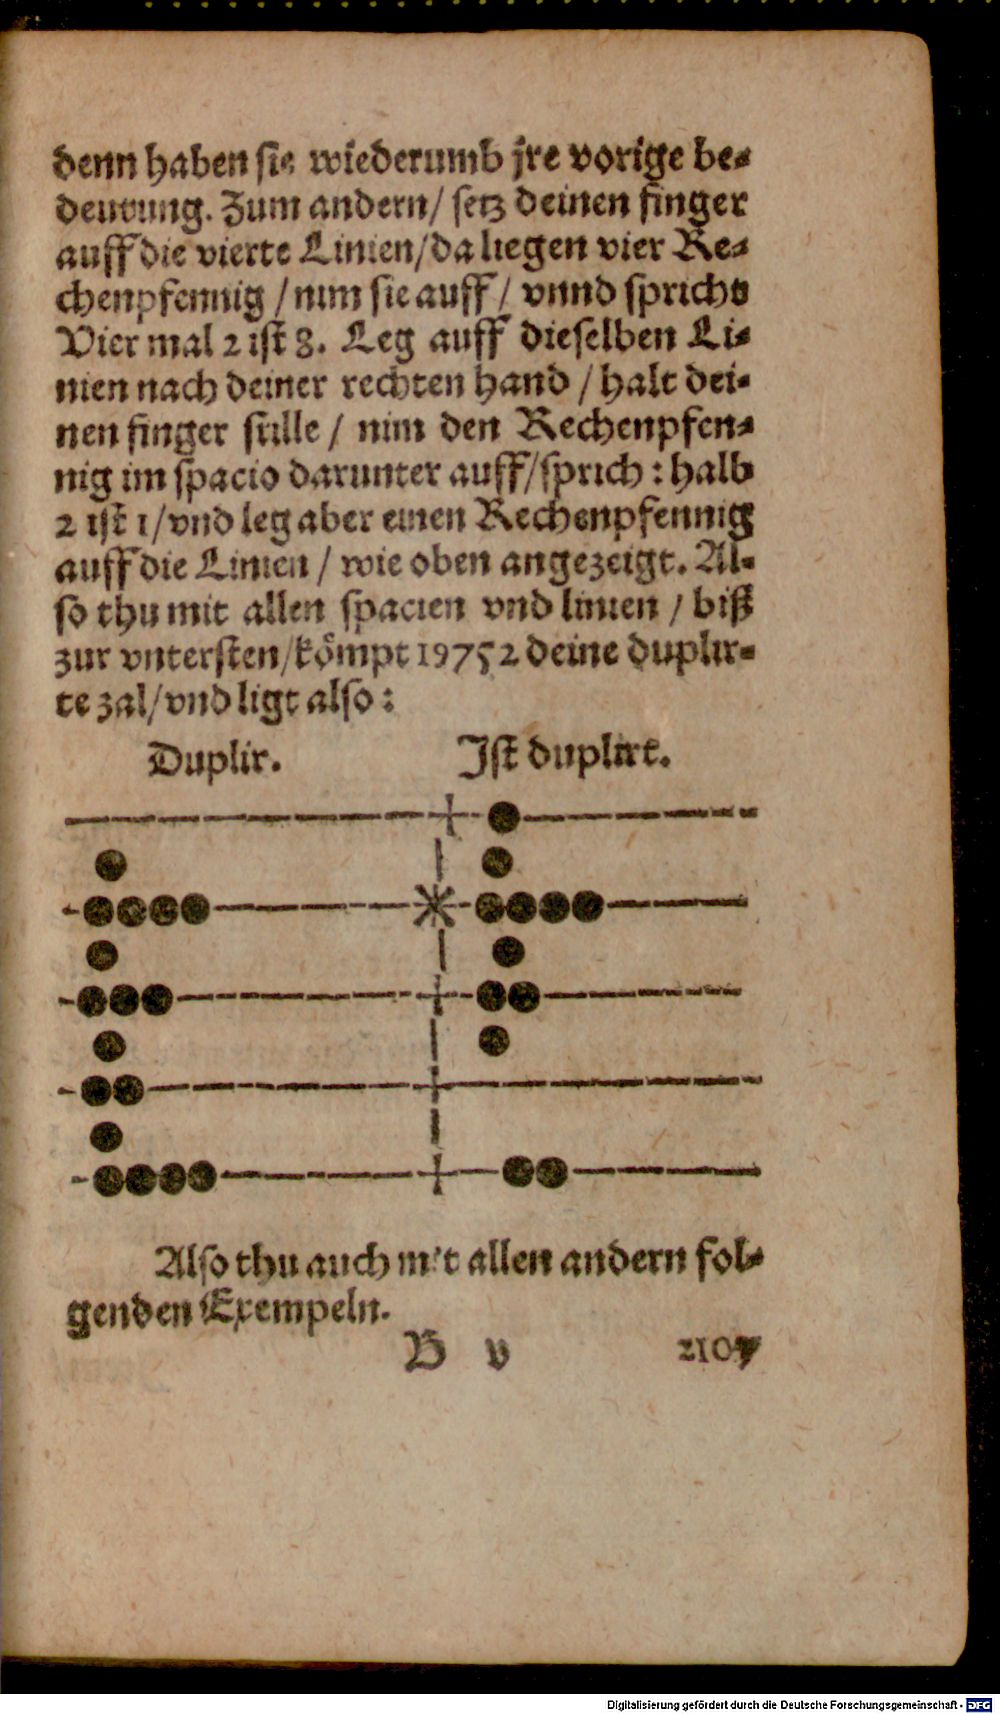 denn haben sie wiederumb jre vorige be-
deutung. Zum andern/ setz deinen finger
auff die vierte Linien/da liegen vier Re-
chenpfennig /nim sie auff/ vnnd spricht
Vier mal 2 ist 8. Leg auff dieselben Li-
nien nach deiner rechten hand / halt dei-
nen finger stille / nim den Rechenpfen-
nig im spacio darunter auff/sprich: halb
2 ist 1/vnd leg aber einen Rechenpfennig
auff die Linien / wie oben angezeigt. Al-
so thu mit allen spacien vnd linien / biß
zur vntersten/kömpt 19752 deine duplir-
te zal/vnd ligt also:
Duplir. Ist duplirt.
Also thu auch mit allen andern fol-
genden Exempeln.
B v 2107
Digitalisierung gefördert durch die Deutsche Forschungsgemeinschaft - DFG